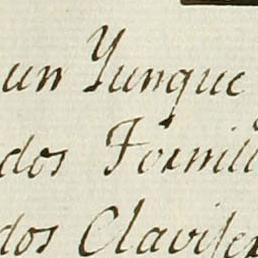 un Yunque
dos Fornill
dos Claviſer